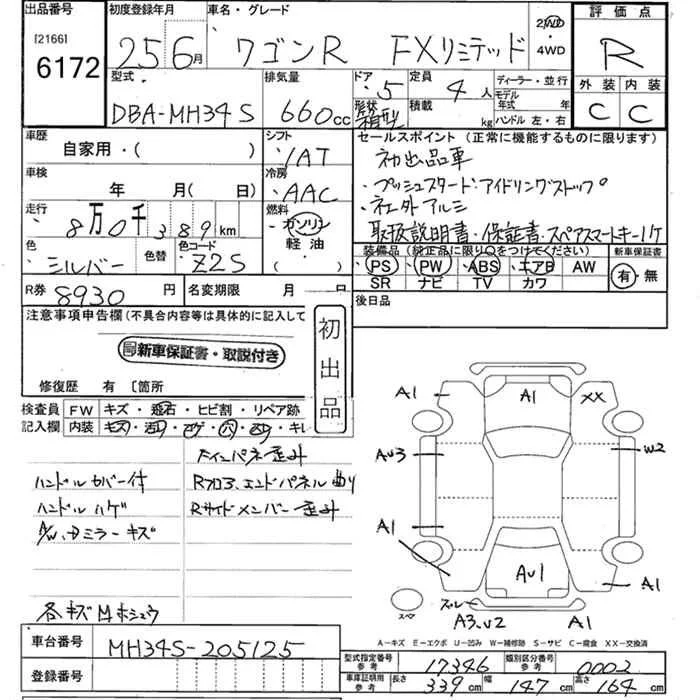 出品番号
[2166]
6172
初度登録年月
25 6月
車名・グレード
ワゴンR FXリミテッド
2WD
4WD
評価点
R
外装 内装
C C
型式
DBA-MH34S
排気量
660cc
ドア
5
定員
4人
形状
箱型
積載
kg
ディーラー・並行
モデル
年式 年
ハンドル 左・右
車歴
自家用・( )
シフト
IAT
セールスポイント (正常に機能するものに限ります)
初出品車
・プッシュスタート・アイドリングストップ
・社外アルミ
取扱説明書・保証書・スペアスマートキー1ケ
車検
年 月( 日)
冷房
AAC
走行
8万0千389km
燃料
ガソリン
軽油
( )
色
シルバー
色替
色コード
Z2S
装備品 (純正品に限り○をつけてください)
PS PW ABS エアB AW
SR ナビ TV カワ
新車保証書
有・無
R券
8930円
名変期限 月 日
後日品
注意事項申告欄 (不具合内容等は具体的に記入して
新車保証書・取説付き
初出品
修復歴 有 〔箇所
検査員
記入欄
FW キズ・飛石・ヒビ割・リペア跡
内装 キズ・
Fインパネ歪み
ハンドルカバー付
Rフロア、エンドパネル曲り
ハンドルハゲ
Rサイドメンバー歪み
ミラーキズ
A1
A1
XX
AU3
W2
A1
AU1
A1
スペア
A3.U2
A1
A-キズ E-エクボ U-凹み W-補修跡 S-サビ C-腐食 XX-交換済
車台番号
MH34S-205125
登録番号
型式指定番号
参考
17346
類別区分番号
参考
0002
車庫証明用
参考
長さ 339cm
幅 147cm
高さ 164cm